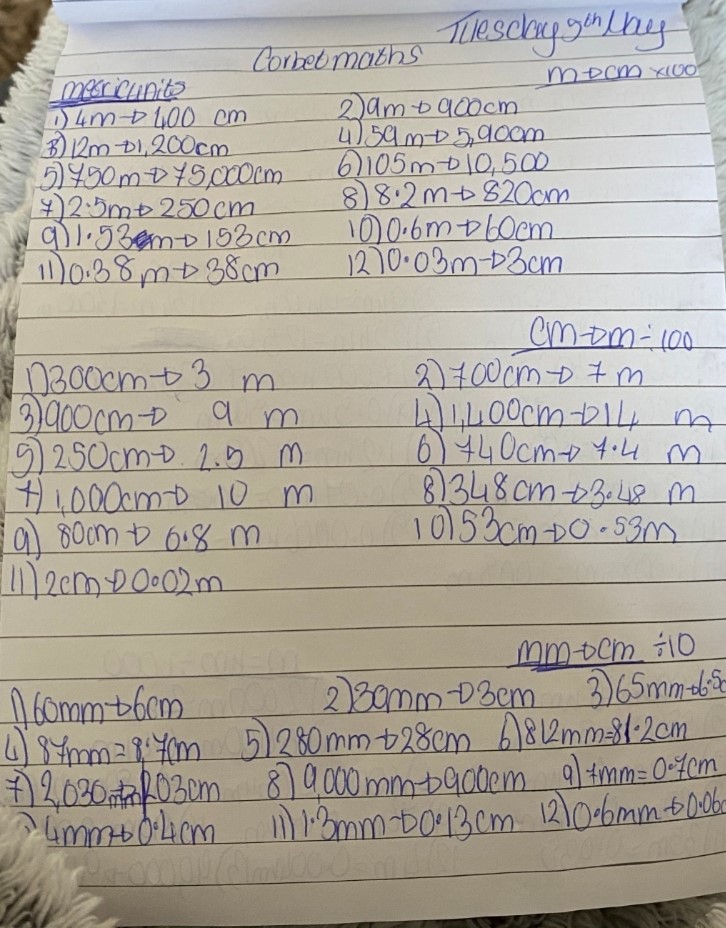 Tuesday 9th May
Corbetmaths
metric units
m→cm ×100
1) 4m→400 cm 2) 9m→900cm
3) 12m→1,200cm 4) 59m→5,900cm
5) 750m→75,000cm 6) 105m→10,500
7) 2.5m→250cm 8) 8.2m→820cm
9) 1.53m→153cm 10) 0.6m→60cm
11) 0.38m→38cm 12) 0.03m→3cm
cm→m ÷100
1) 300cm→3 m 2) 700cm→7m
3) 900cm→ 9 m 4) 1,400cm→14 m
5) 250cm→ 2.5 m 6) 740cm→7.4 m
7) 1,000cm→ 10 m 8) 348cm→3.48 m
9) 80cm→ 0.8 m 10) 53cm→0.53m
11) 2cm→0.02m
mm→cm ÷10
1) 60mm→6cm 2) 30mm→3cm 3) 65mm→6.5c
4) 87mm=8.7cm 5) 280mm→28cm 6) 812mm=81.2cm
7) 2,030mm→203cm 8) 9,000mm→900cm 9) 7mm=0.7cm
) 4mm→0.4cm 11) 1.3mm→0.13cm 12) 0.6mm→0.06c